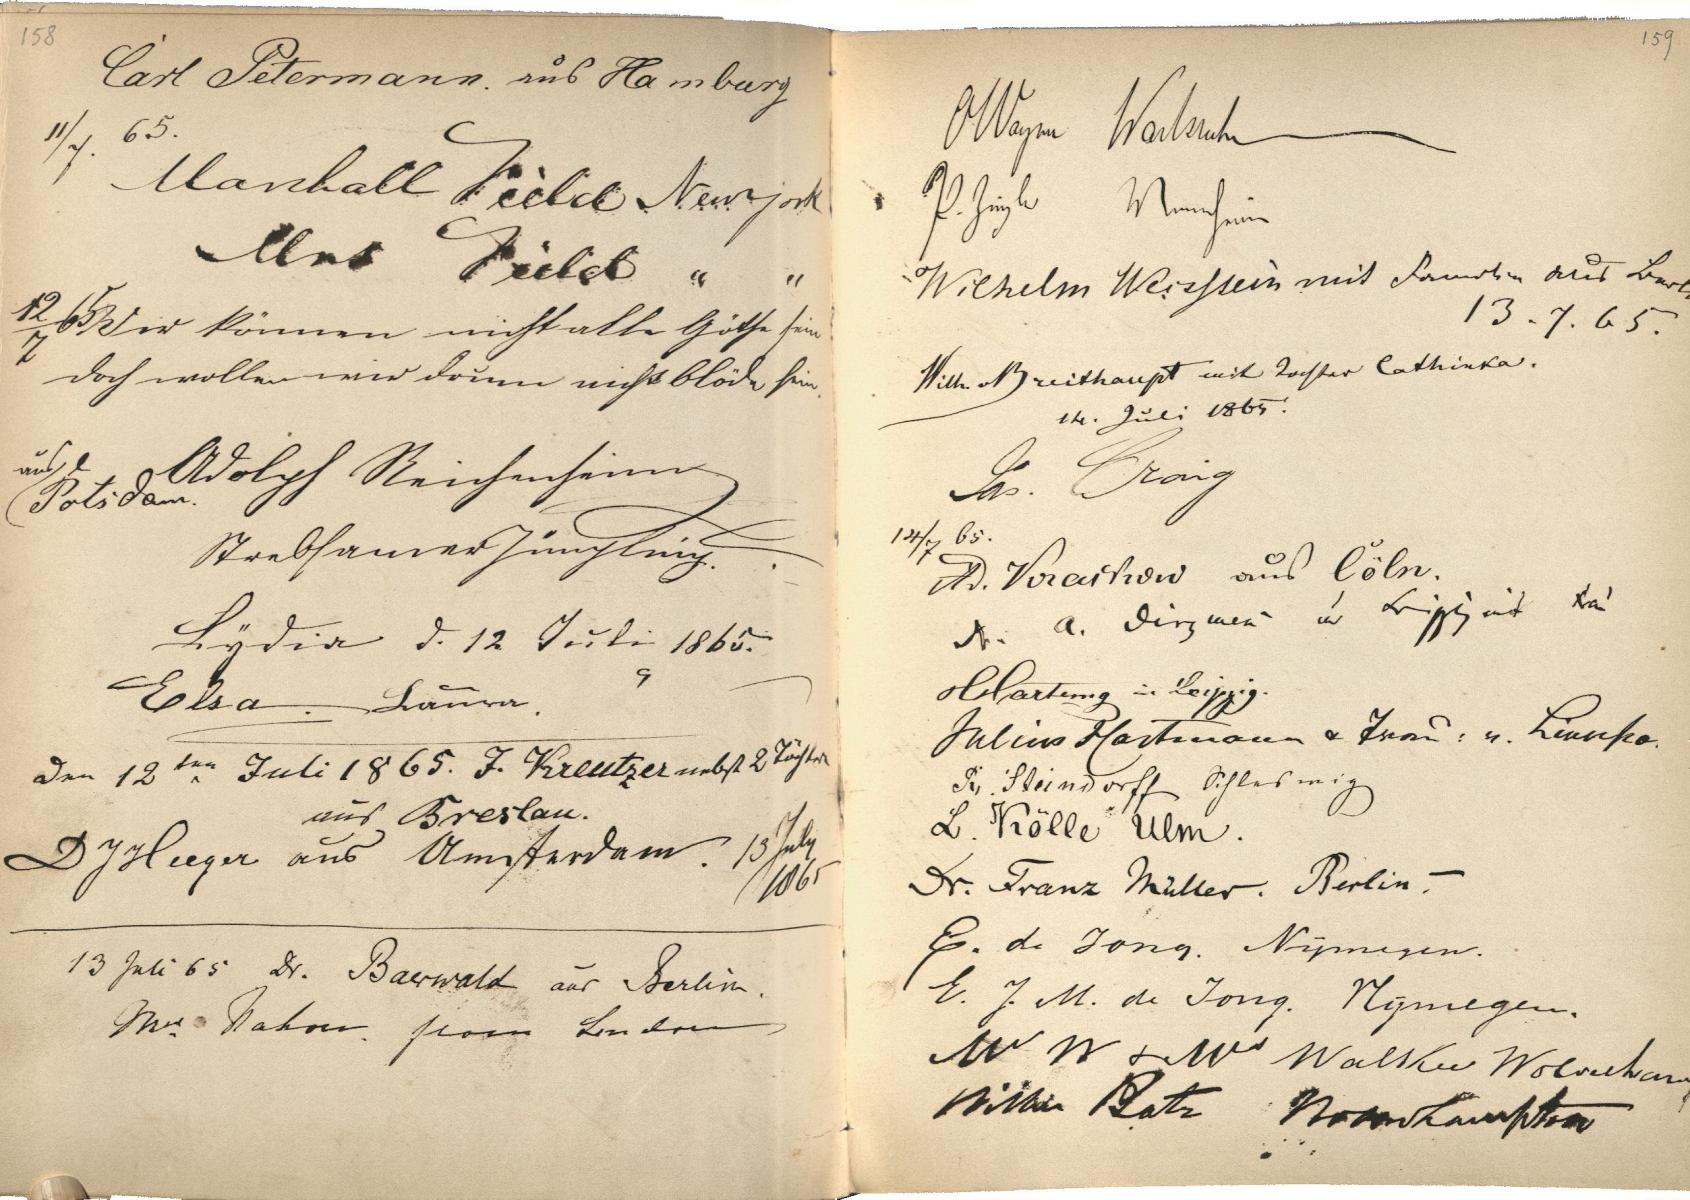 158
Carl Petermann. aus Hamburg
11/7. 65.
Marshall Field Newyork
Mrs Field " "
12/7 65 Wir können nicht alle Göthe sein
doch wollen wir drum nicht blöde sein.
aus Potsdam.
Adolph Reichenheim
Strebsamer Jüngling.
Lydia d. 12 Juli 1865.
Elsa. Laura.
Den 12ten Juli 1865. J. Kreutzer nebst 2 Töchter
aus Breslau.
D J Heeger aus Amsterdam. 13 July 1865
13 Juli 65 Dr. Baerwald aus Berlin.
Mrs from London
159
O Wagner
P. Mannheim
Wilhelm Weisstein mit Familie aus Berlin
13. 7. 65.
Wilh. Breithaupt mit Tochter Cathinka.
14. Juli 1865.
Jas. Craig
14/7 65.
Ad. aus Cöln.
Dr. A. in Leipzig mit Frau
Hartung in Leipzig.
Julius Hartmann & Frau: u.
Steindorff Schleswig
L. Kölle Ulm.
Dr. Franz Müller. Berlin.
E. de Jong. Nijmegen.
E. J. M. de Jong. Nijmegen.
Mr W & Mrs Walker